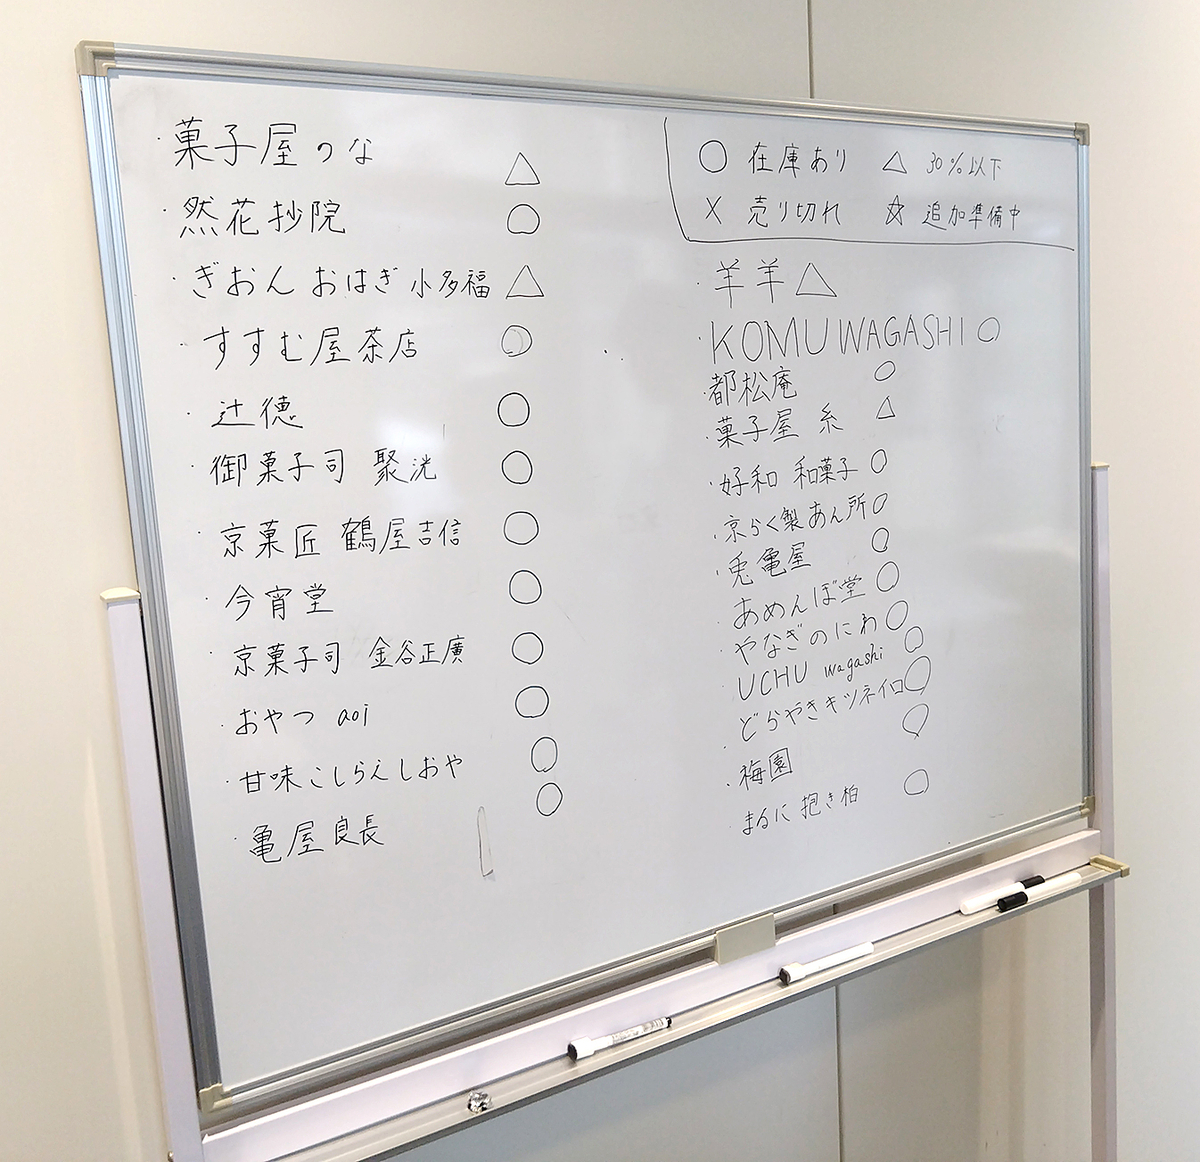 ・菓子屋のな △
・然花抄院 ○
・ぎおん おはぎ 小多福 △
すすむ屋茶店 ○
・辻徳 ○
・御菓子司 聚洸 ○
・京菓匠 鶴屋吉信 ○
・今宵堂 ○
・京菓子司 金谷正廣 ○
・おやつ aoi ○
・甘味こしらえしおや ○
・亀屋良長 ○
○ 在庫あり △ 30%以下
× 売り切れ ☆ 追加準備中
・羊羊 △
・KOMU WAGASHI ○
・都松庵 ○
・菓子屋 糸 △
・好和 和菓子 ○
・京らく製あん所 ○
・兎亀屋 ○
・あめんぼ堂 ○
・やなぎのにわ ○
・UCHU wagashi ○
・どらやきキツネイロ ○
・梅園 ○
・まるに 抱き柏 ○